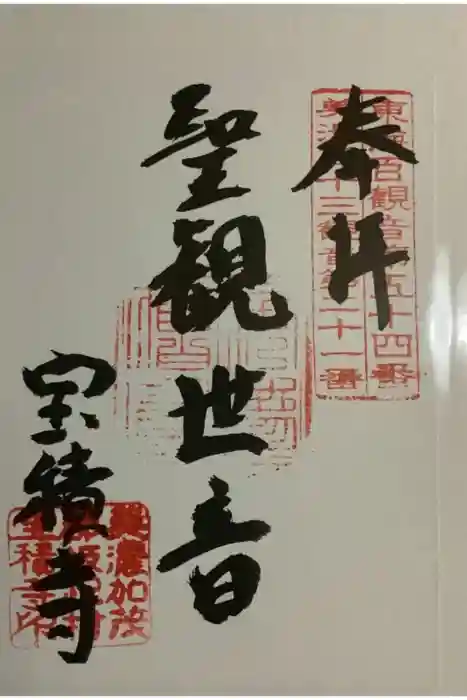 東海百観音第五十四番
美濃三十三観音第二十一番
奉拝
聖観世音
宝積寺
美濃加茂
宝積寺印